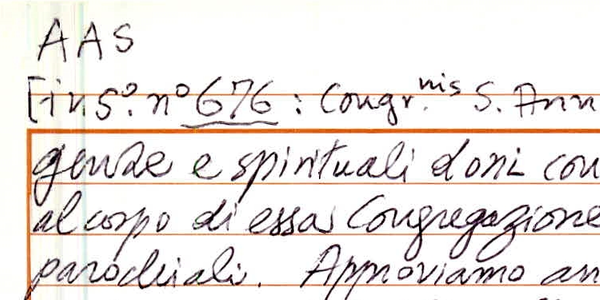 AAS
[in S°. n° 676 : Congr.nis S. Ann
genze e spirituali doni con
al corpo di essa Congregazione
parochiali. Approviamo an